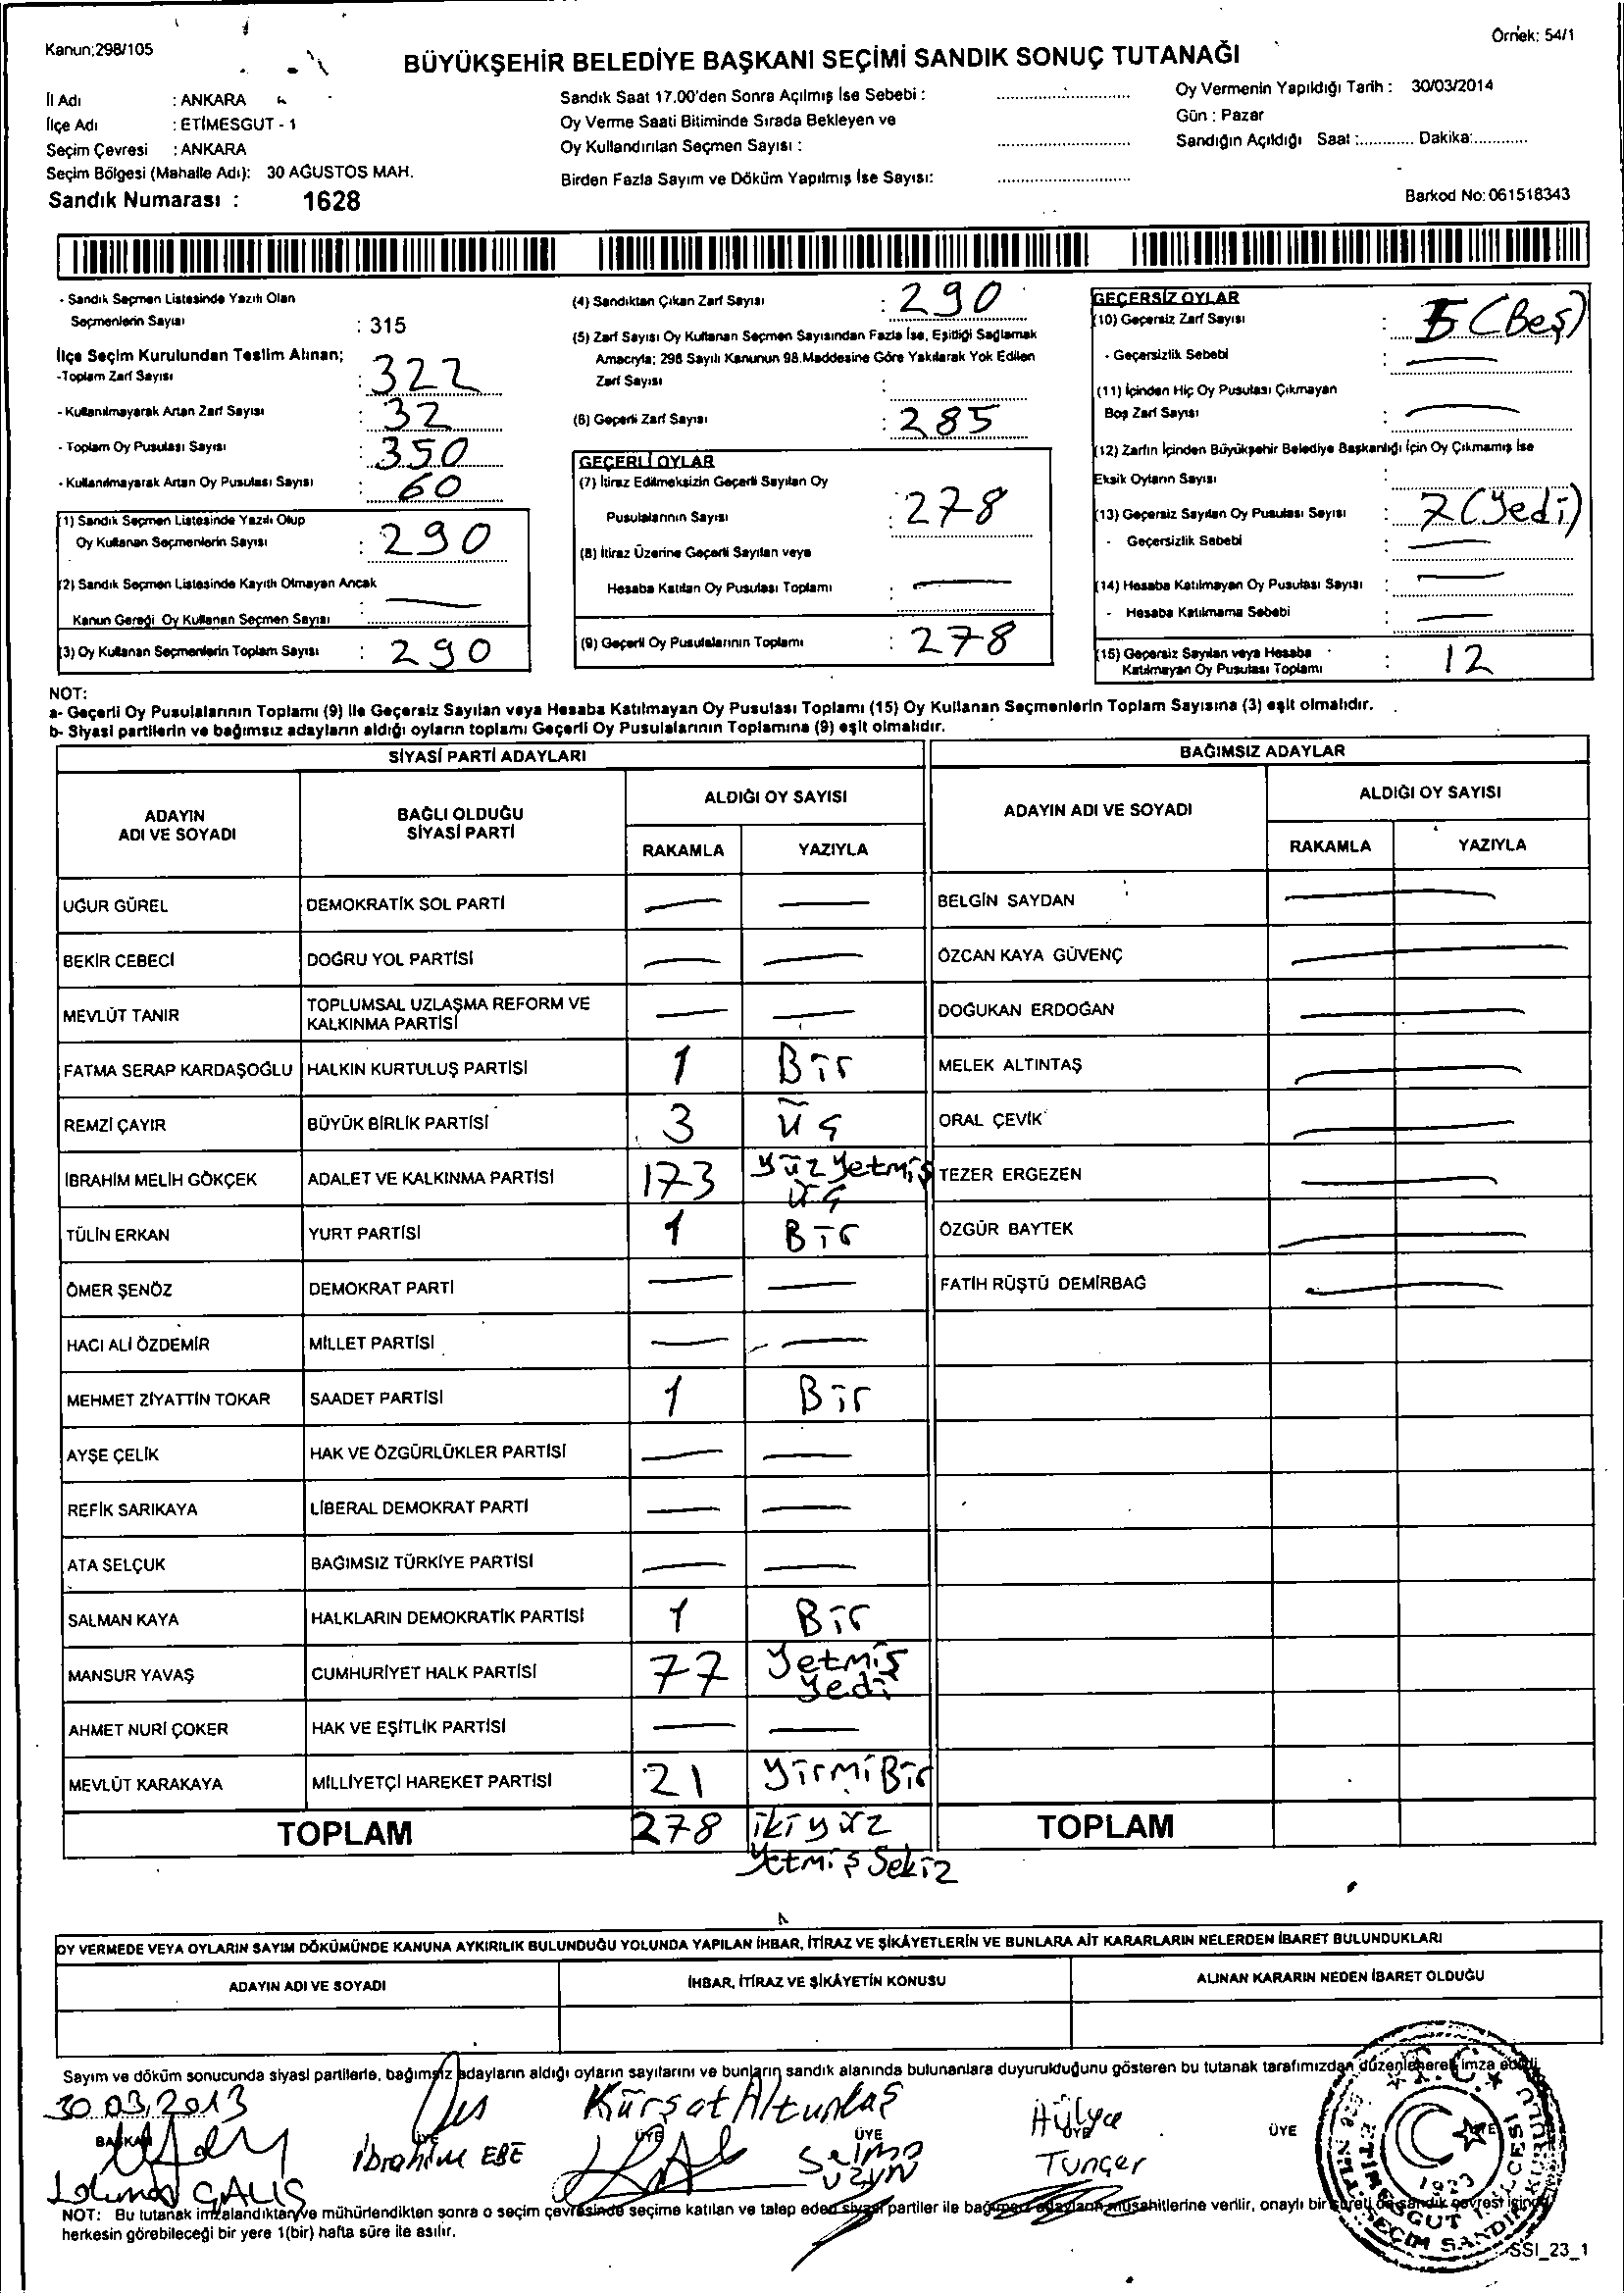 Kanun;298/105
Örnek: 54/1
BÜYÜKŞEHİR BELEDİYE BAŞKANI SEÇİMİ SANDIK SONUÇ TUTANAĞI
İl Adı : ANKARA
İlçe Adı : ETİMESGUT - 1
Seçim Çevresi : ANKARA
Seçim Bölgesi (Mahalle Adı): 30 AĞUSTOS MAH.
Sandık Numarası : 1628
Sandık Saat 17.00'den Sonra Açılmış İse Sebebi :
Oy Verme Saati Bitiminde Sırada Bekleyen ve
Oy Kullandırılan Seçmen Sayısı :
Birden Fazla Sayım ve Döküm Yapılmış İse Sayısı:
Oy Vermenin Yapıldığı Tarih : 30/03/2014
Gün : Pazar
Sandığın Açıldığı Saat :............ Dakika:............
Barkod No: 061518343
- Sandık Seçmen Listesinde Yazılı Olan
Seçmenlerin Sayısı : 315
İlçe Seçim Kurulundan Teslim Alınan;
-Toplam Zarf Sayısı : 322
- Kullanılmayarak Artan Zarf Sayısı : 32
- Toplam Oy Pusulası Sayısı : 350
- Kullanılmayarak Artan Oy Pusulası Sayısı : 60
(1) Sandık Seçmen Listesinde Yazılı Olup
Oy Kullanan Seçmenlerin Sayısı : 290
(2) Sandık Seçmen Listesinde Kayıtlı Olmayan Ancak
Kanun Gereği Oy Kullanan Seçmen Sayısı : —
(3) Oy Kullanan Seçmenlerin Toplam Sayısı : 290
(4) Sandıktan Çıkan Zarf Sayısı : 290
(5) Zarf Sayısı Oy Kullanan Seçmen Sayısından Fazla İse, Eşitliği Sağlamak
Amacıyla; 298 Sayılı Kanunun 98.Maddesine Göre Yakılarak Yok Edilen
Zarf Sayısı :
(6) Geçerli Zarf Sayısı : 285
GEÇERLİ OYLAR
(7) İtiraz Edilmeksizin Geçerli Sayılan Oy
Pusulalarının Sayısı : 278
(8) İtiraz Üzerine Geçerli Sayılan veya
Hesaba Katılan Oy Pusulası Toplamı : —
(9) Geçerli Oy Pusulalarının Toplamı : 278
GEÇERSİZ OYLAR
(10) Geçersiz Zarf Sayısı : 5 (Beş)
- Geçersizlik Sebebi : —
(11) İçinden Hiç Oy Pusulası Çıkmayan
Boş Zarf Sayısı : —
(12) Zarfın İçinden Büyükşehir Belediye Başkanlığı İçin Oy Çıkmamış İse
Eksik Oyların Sayısı :
(13) Geçersiz Sayılan Oy Pusulası Sayısı : 7 (Yedi)
- Geçersizlik Sebebi : —
(14) Hesaba Katılmayan Oy Pusulası Sayısı : —
- Hesaba Katılmama Sebebi : —
(15) Geçersiz Sayılan veya Hesaba
Katılmayan Oy Pusulası Toplamı : 12
NOT:
a- Geçerli Oy Pusulalarının Toplamı (9) ile Geçersiz Sayılan veya Hesaba Katılmayan Oy Pusulası Toplamı (15) Oy Kullanan Seçmenlerin Toplam Sayısına (3) eşit olmalıdır.
b- Siyasi partilerin ve bağımsız adayların aldığı oyların toplamı Geçerli Oy Pusulalarının Toplamına (9) eşit olmalıdır.
SİYASİ PARTİ ADAYLARI
ADAYIN ADI VE SOYADI
BAĞLI OLDUĞU SİYASİ PARTİ
ALDIĞI OY SAYISI
RAKAMLA YAZIYLA
UĞUR GÜREL DEMOKRATİK SOL PARTİ — —
BEKİR CEBECİ DOĞRU YOL PARTİSİ — —
MEVLÜT TANIR TOPLUMSAL UZLAŞMA REFORM VE KALKINMA PARTİSİ — —
FATMA SERAP KARDAŞOĞLU HALKIN KURTULUŞ PARTİSİ 1 Bir
REMZİ ÇAYIR BÜYÜK BİRLİK PARTİSİ 3 Üç
İBRAHİM MELİH GÖKÇEK ADALET VE KALKINMA PARTİSİ 173 Yüz Yetmiş Üç
TÜLİN ERKAN YURT PARTİSİ 1 Bir
ÖMER ŞENÖZ DEMOKRAT PARTİ — —
HACI ALİ ÖZDEMİR MİLLET PARTİSİ — —
MEHMET ZİYATTİN TOKAR SAADET PARTİSİ 1 Bir
AYŞE ÇELİK HAK VE ÖZGÜRLÜKLER PARTİSİ — —
REFİK SARIKAYA LİBERAL DEMOKRAT PARTİ — —
ATA SELÇUK BAĞIMSIZ TÜRKİYE PARTİSİ — —
SALMAN KAYA HALKLARIN DEMOKRATİK PARTİSİ 1 Bir
MANSUR YAVAŞ CUMHURİYET HALK PARTİSİ 77 Yetmiş Yedi
AHMET NURİ ÇOKER HAK VE EŞİTLİK PARTİSİ — —
MEVLÜT KARAKAYA MİLLİYETÇİ HAREKET PARTİSİ 21 YirmiBir
TOPLAM 278 ikiyüz
Yetmiş Sekiz
BAĞIMSIZ ADAYLAR
ADAYIN ADI VE SOYADI
ALDIĞI OY SAYISI
RAKAMLA YAZIYLA
BELGİN SAYDAN —
ÖZCAN KAYA GÜVENÇ —
DOĞUKAN ERDOĞAN —
MELEK ALTINTAŞ —
ORAL ÇEVİK —
TEZER ERGEZEN —
ÖZGÜR BAYTEK —
FATİH RÜŞTÜ DEMİRBAĞ —
TOPLAM
OY VERMEDE VEYA OYLARIN SAYIM DÖKÜMÜNDE KANUNA AYKIRILIK BULUNDUĞU YOLUNDA YAPILAN İHBAR, İTİRAZ VE ŞİKÂYETLERİN VE BUNLARA AİT KARARLARIN NELERDEN İBARET BULUNDUKLARI
ADAYIN ADI VE SOYADI
İHBAR, İTİRAZ VE ŞİKÂYETİN KONUSU
ALINAN KARARIN NEDEN İBARET OLDUĞU
Sayım ve döküm sonucunda siyasi partilerle, bağımsız adayların aldığı oyların sayılarını ve bunların sandık alanında bulunanlara duyurulduğunu gösteren bu tutanak tarafımızdan düzenlenerek imza edildi
30.03.2013
BAŞKAN ÜYE ÜYE ÜYE ÜYE ÜYE ÜYE
İbrahim EBE
Kürşat Altunbaş
Selma UZUN
Hülya Tunçer
ÇALIŞ
T.C. 1923
NOT: Bu tutanak imzalandıktan ve mühürlendikten sonra o seçim çevresinde seçime katılan ve talep eden siyasi partiler ile bağımsız adayların müşahitlerine verilir, onaylı bir sureti de sandık çevresi içinde
herkesin görebileceği bir yere 1(bir) hafta süre ile asılır.
SSI_23_1